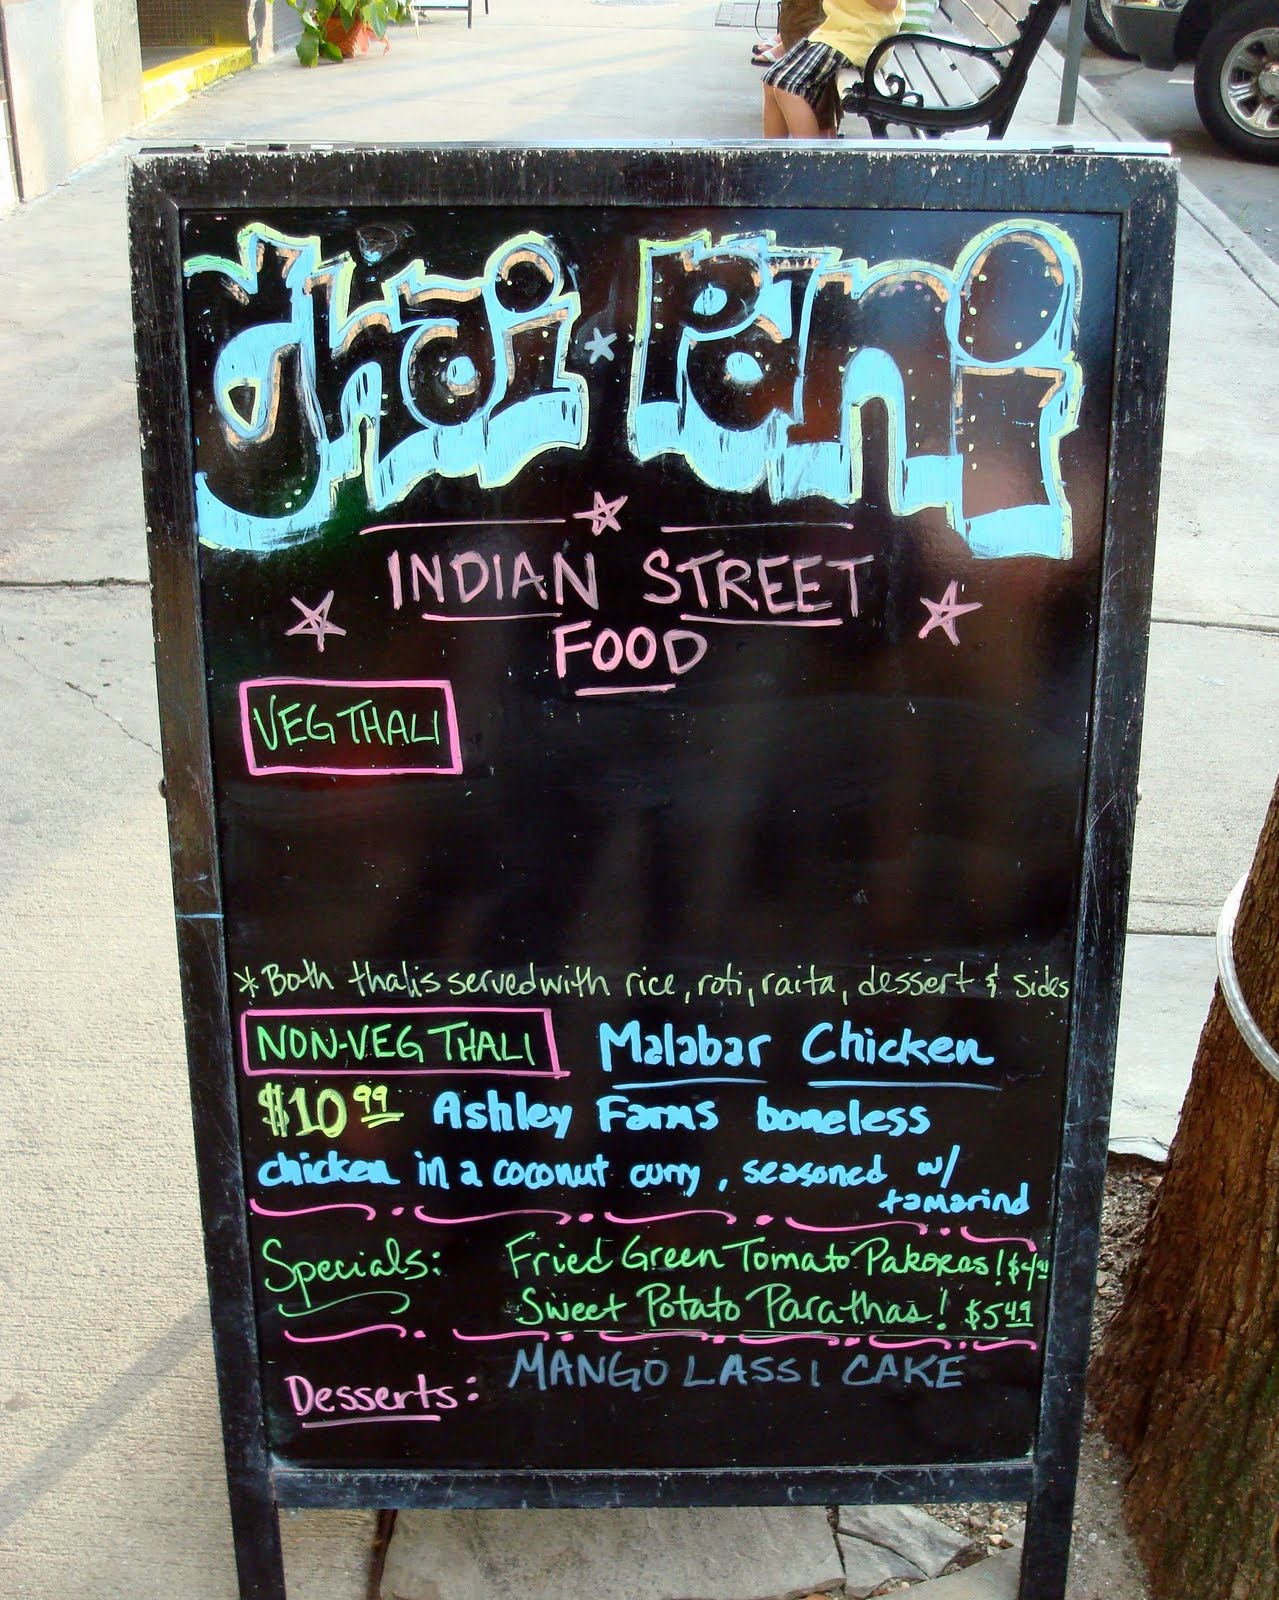 chai Pani
INDIAN STREET
FOOD
VEG THALI
*Both thalis served with rice, roti, raita, dessert & sides
NON-VEG THALI Malabar Chicken
$10.99 Ashley Farms boneless
chicken in a coconut curry, seasoned w/
tamarind
Specials: Fried Green Tomato Pakoras! $4.49
Sweet Potato Parathas! $5.49
MANGO LASSI CAKE
Desserts: